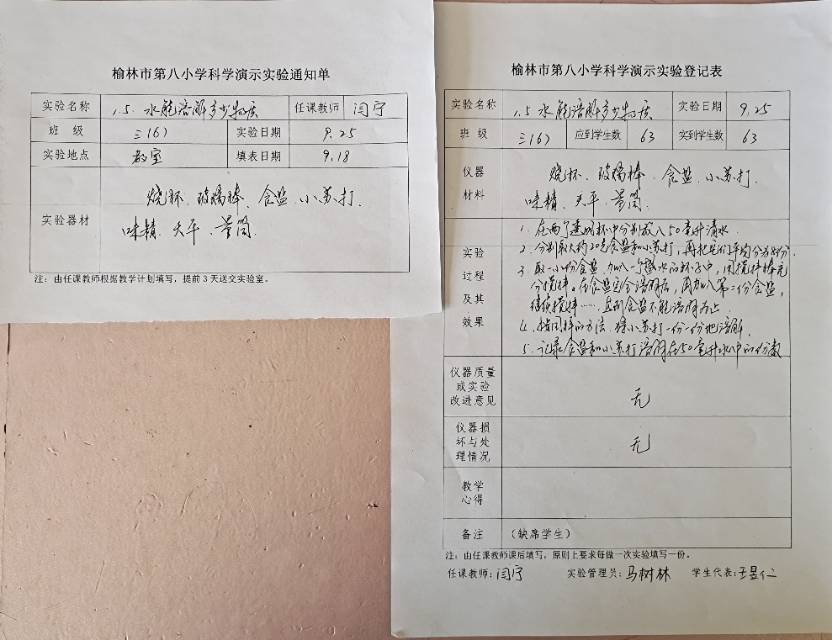 榆林市第八小学科学演示实验通知单
实验名称 1.5. 水能溶解多少物质 任课教师 闫宁
班 级 三(6) 实验日期 9.25
实验地点 教室 填表日期 9.18
实验器材
烧杯、玻璃棒、食盐、小苏打、
味精、天平、量筒.
注：由任课教师根据教学计划填写，提前3天送交实验室。
榆林市第八小学科学演示实验登记表
实验名称 1.5 水能溶解多少物质 实验日期 9.25
班 级 三(6) 应到学生数 63 实到学生数 63
仪器
材料
烧杯、玻璃棒、食盐、小苏打、
味精、天平、量筒.
实验
过程
及其
效果
1. 在两个烧杯中分别放入50毫升清水.
2. 分别取大约20克食盐和小苏打,再把它们平均分为8份.
3. 取一小份食盐,加入一个盛水的杯子中,用搅拌棒充
分搅拌。在食盐完全溶解后,再加入第二份食盐,
继续搅拌……直到食盐不能溶解为止.
4. 按同样的方法,将小苏打一份一份地溶解.
5. 记录食盐和小苏打溶解在50毫升水中的份数
仪器质量
或实验
改进意见
无
仪器损
坏与处
理情况
无
教学
心得
备注 （缺席学生）
注：由任课教师课后填写，原则上要求每做一次实验填写一份。
任课教师：闫宁 实验管理员：马树林 学生代表：王昱仁